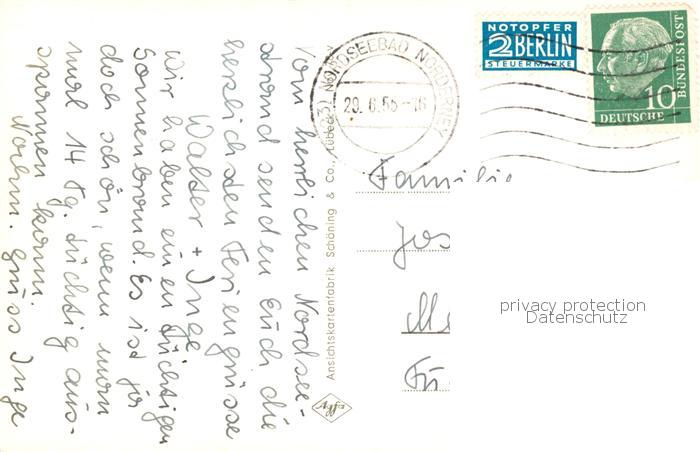 Vom herrlichen Nordsee-
strand senden Euch die
herzlichsten Feriengrüsse
Walter + Inge
Wir haben einen tüchtigen
Sonnenbrand. Es ist ja
doch schön, wenn man
mal 14 Tg. tüchtig aus-
spannen kann.
Nochm. Gruss Inge
Ansichtskartenfabrik Schöning & Co., Lübeck
Agfa
NORDSEEBAD NORDERNEY
29.6.55-16
NOTOPFER
2 BERLIN
STEUERMARKE
10
DEUTSCHE
BUNDESPOST
Familie
Jos
privacy protection
Datenschutz